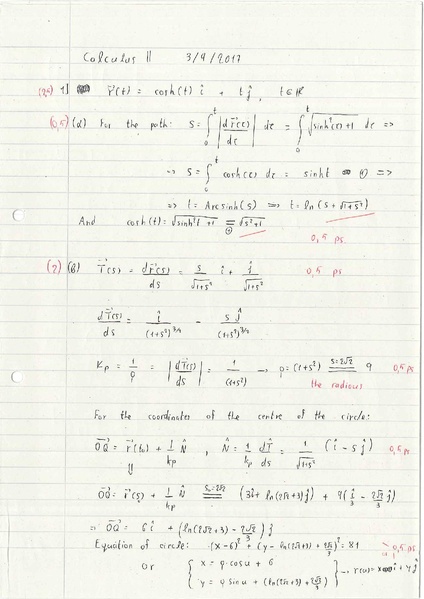 Calculus II 3/4/2017
1) r(t) = cosh(t) î + t ĵ, t∈ℝ
(0,5) (a) For the path: S = ∫₀ᵗ |dr(τ)/dτ| dτ = ∫₀ᵗ √(sinh²(τ)+1) dτ =>
=> S = ∫₀ᵗ cosh(τ) dτ = sinht ⊕ =>
=> t = Arcsinh(S) => t = ln(S + √(1+S²))
And cosh(t) = √(sinh²t + 1) = √(S²+1)
⊕
0,5 ps
(2) (b) T(s) = dr(s)/ds = s/√(1+s²) î + ĵ/√(1+s²) 0,5 ps
dT(s)/ds = î/(1+s²)^(3/2) - s ĵ/(1+s²)^(3/2)
Kp = 1/ρ = |dT(s)/ds| = 1/(1+s²) → ρ = (1+s²) =(s=2√2) 9 0,5 ps
the radious
For the coordinates of the centre of the circle:
OQ = r(t₀) + 1/kp N̂, N̂ = 1/kp dT/ds = 1/√(1+s²) (î - s ĵ) 0,5 ps
⇓
OQ = r(s) + 1/kp N̂ =(s₀=2√2) (3î + ln(2√2+3)ĵ) + 9(î/3 - 2√2/3 ĵ)
=> OQ = 6 î + (ln(2√2+3) - 2√2/3) ĵ
Equation of circle: (x-6)² + (y - ln(2√2+3) + 2√2/3)² = 81 0,5 ps
or { x = 9 cosu + 6
y = 9 sinu + (ln(2√2+3) + 2√2/3)